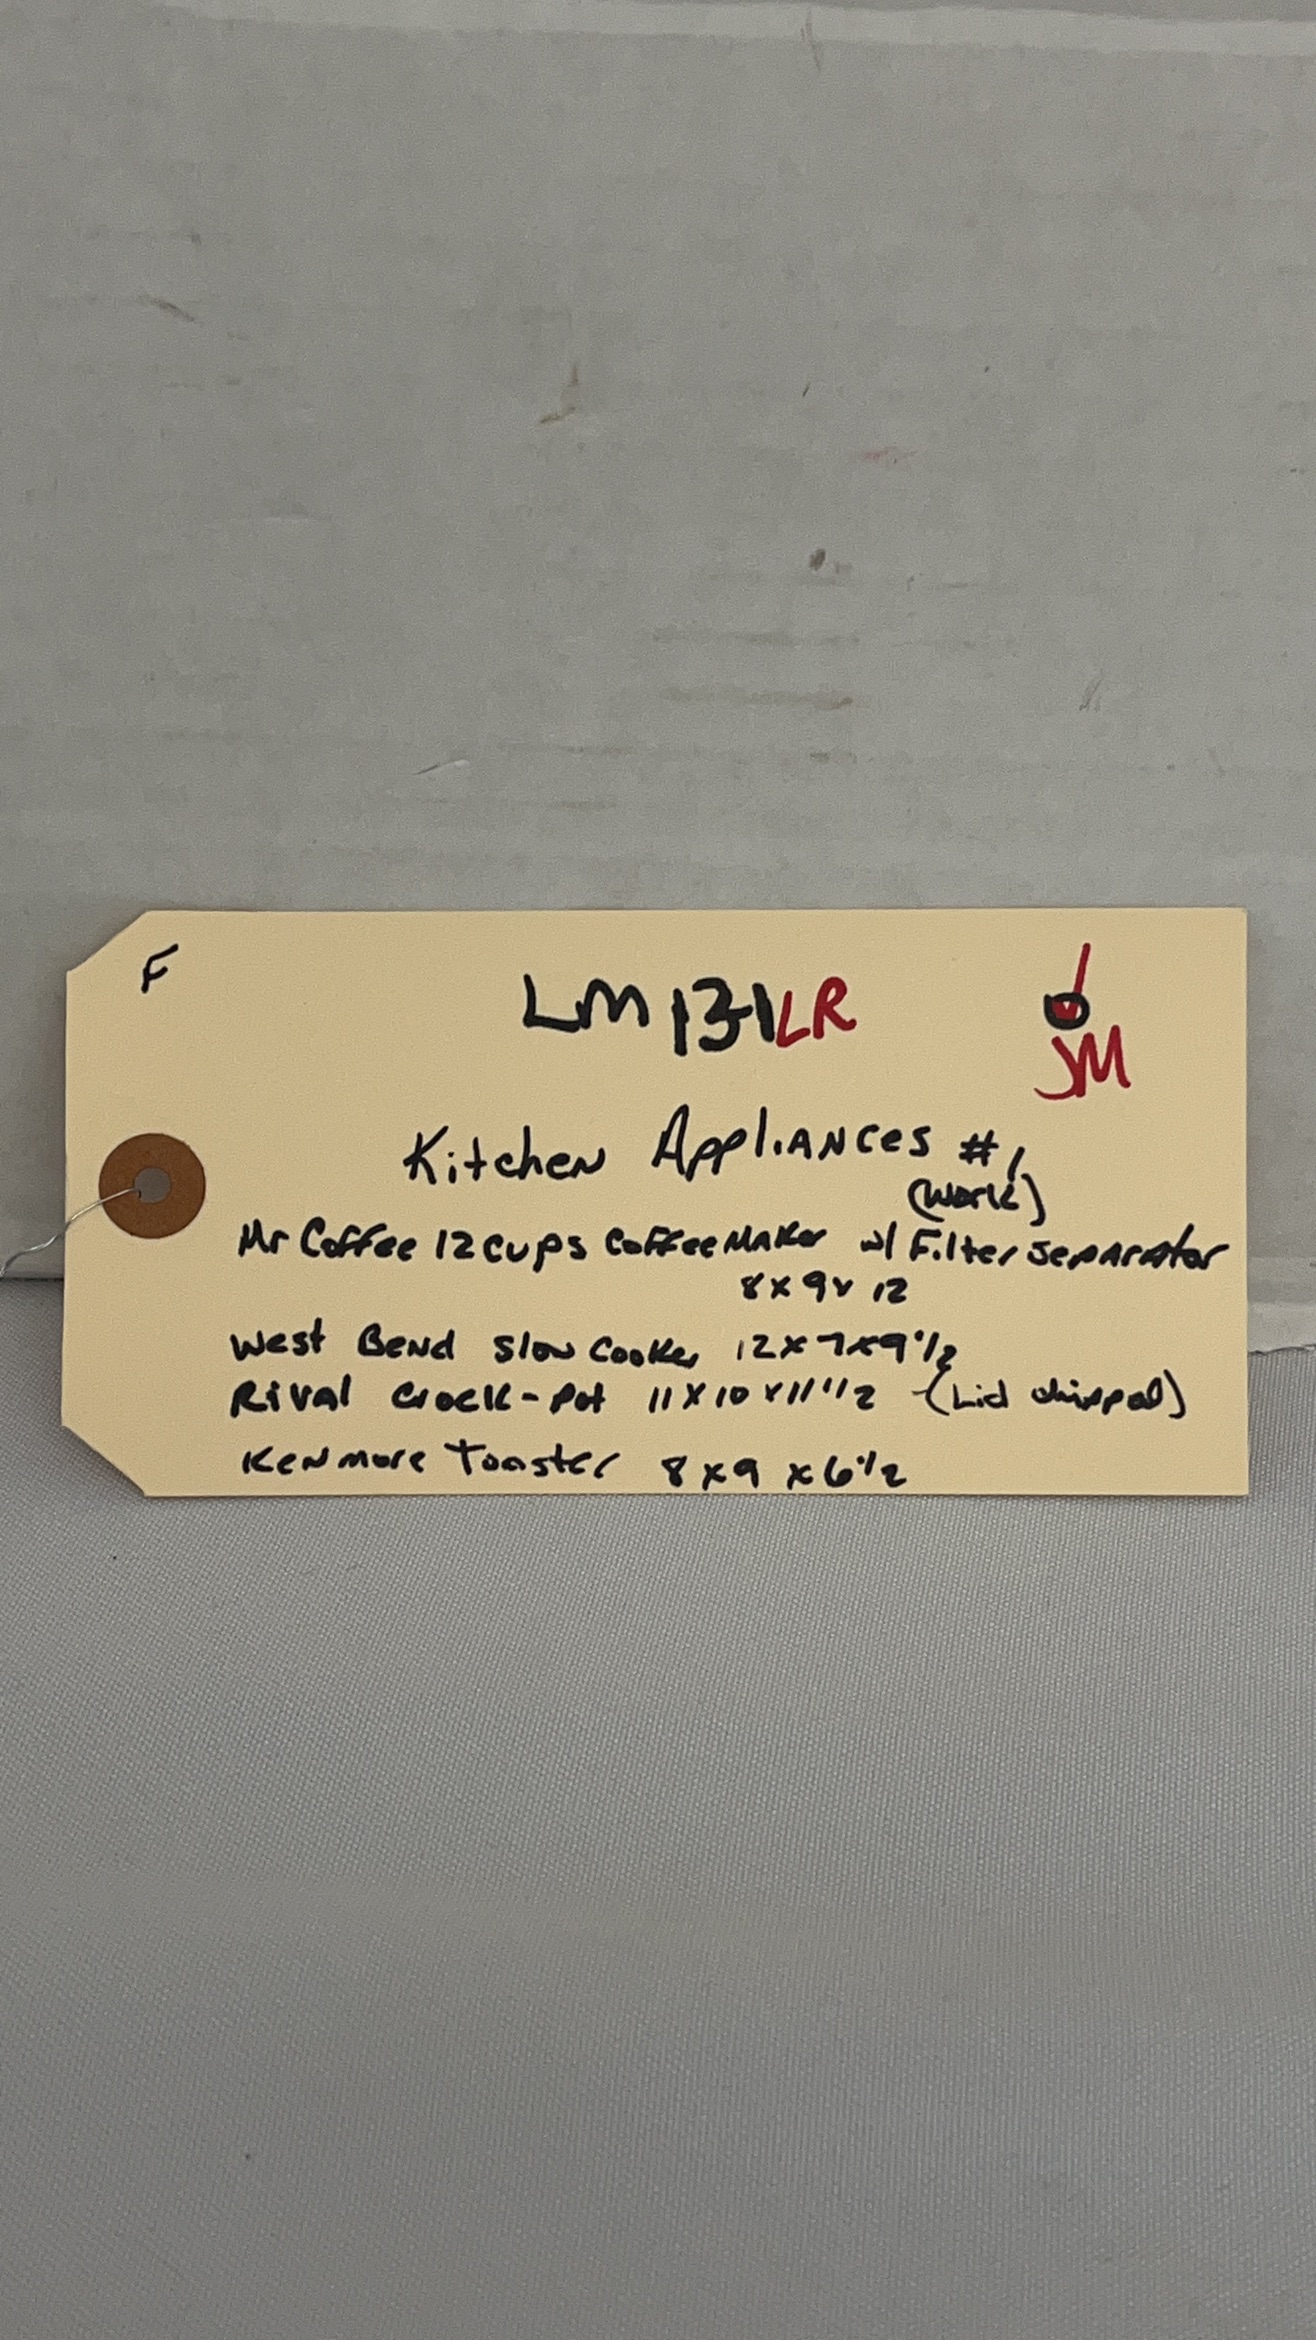 F
LM 131LR
JM
Kitchen Appliances #1
(work)
Mr Coffee 12 cups CoffeeMaker w/ Filter separator
8 x 9 x 12
West Bend Slow Cooker 12 x 7 x 9 1/2
Rival Crock-Pot 11 x 10 x 11 1/2 (Lid chipped)
Kenmore Toaster 8 x 9 x 6 1/2